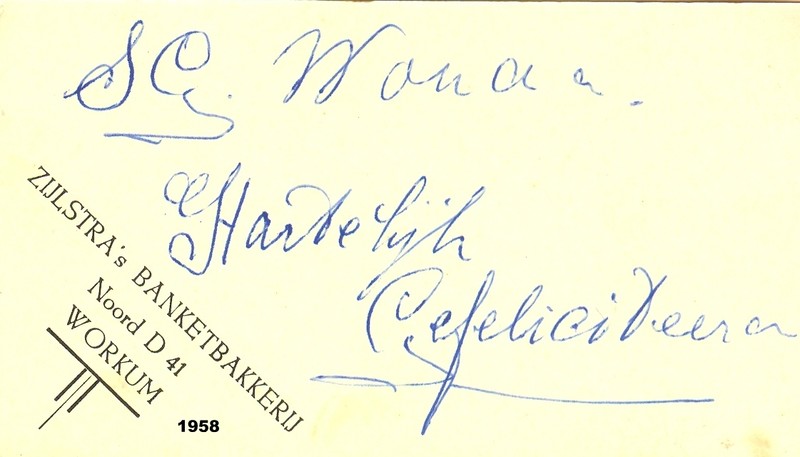 Hartelijk
Gefeliciteera
ZIJLSTRA's BANKETBAKKERIJ
Noord D 41
WORKUM
1958